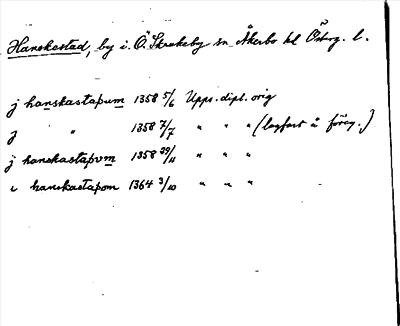 Hanskastad, by i. Ö. Skrukeby sn Åkerbo hd Österg. l.
j hanskastaþum 1358 5/6 Upps. dipl. orig
j " 1358 7/7 " " " (lagfart å föreg.)
j hanskastaþvm 1358 29/11 " " "
i hanskastaþom 1364 3/10 " " "